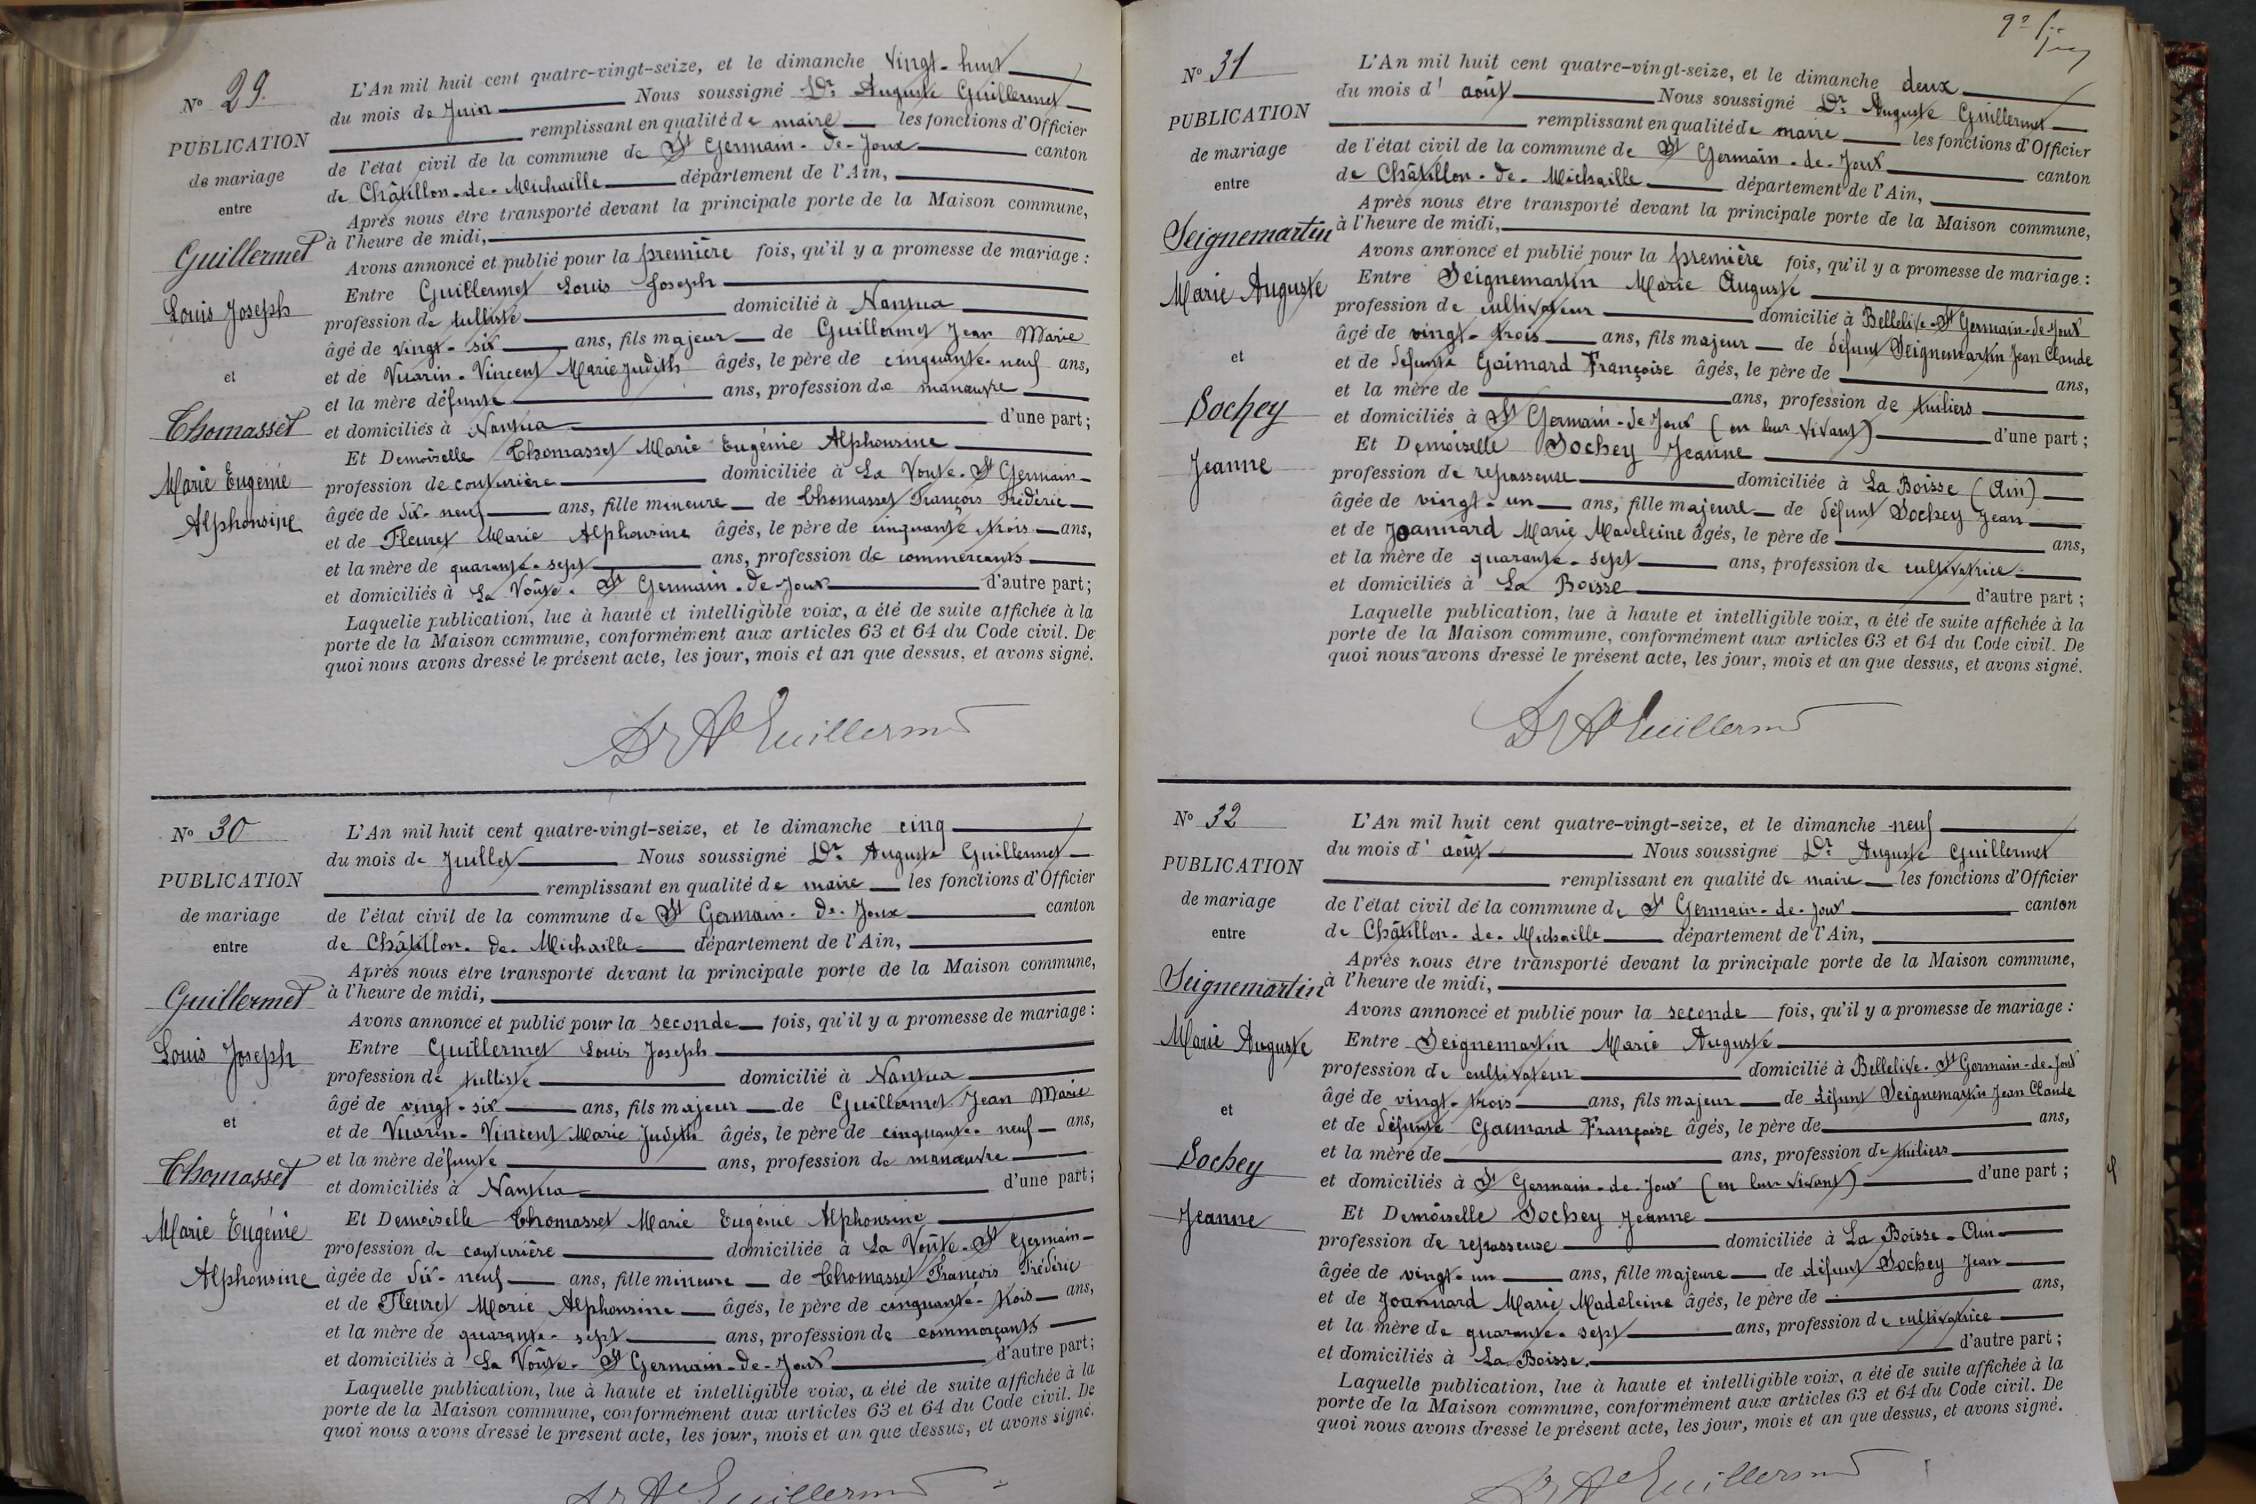 N° 29.
PUBLICATION
de mariage
entre
Guillermet
Louis Joseph
et
Thomasset
Marie Eugénie
Alphonsine
L'An mil huit cent quatre-vingt-seize, et le dimanche vingt-huit
du mois de Juin Nous soussigné Dr Auguste Guillermet
remplissant en qualité de maire les fonctions d'Officier
de l'état civil de la commune de St Germain-de-Joux canton
de Châtillon-de-Michaille département de l'Ain,
Après nous être transporté devant la principale porte de la Maison commune,
à l'heure de midi,
Avons annoncé et publié pour la première fois, qu'il y a promesse de mariage :
Entre Guillermet Louis Joseph
profession de tulliste domicilié à Nantua
âgé de vingt-six ans, fils majeur de Guillermet Jean Marie
et de Vuarin-Vincent Marie Judith âgés, le père de cinquante-neuf ans,
et la mère défunte ans, profession de manœuvre
et domiciliés à Nantua d'une part ;
Et Demoiselle Thomasset Marie Eugénie Alphonsine
profession de couturière domiciliée à La Voûte-St Germain-
âgée de dix-neuf ans, fille mineure de Thomasset François Frédéric
et de Fleuret Marie Alphonsine âgés, le père de cinquante trois ans,
et la mère de quarante-sept ans, profession de commerçants
et domiciliés à La Voûte-St Germain-de-Joux d'autre part ;
Laquelle publication, lue à haute et intelligible voix, a été de suite affichée à la
porte de la Maison commune, conformément aux articles 63 et 64 du Code civil. De
quoi nous avons dressé le présent acte, les jour, mois et an que dessus, et avons signé.
Dr Ate Guillermet
N° 30
PUBLICATION
de mariage
entre
Guillermet
Louis Joseph
et
Thomasset
Marie Eugénie
Alphonsine
L'An mil huit cent quatre-vingt-seize, et le dimanche cinq
du mois de Juillet Nous soussigné Dr Auguste Guillermet
remplissant en qualité de maire les fonctions d'Officier
de l'état civil de la commune de St Germain-de-Joux canton
de Châtillon-de-Michaille département de l'Ain,
Après nous être transporté devant la principale porte de la Maison commune,
à l'heure de midi,
Avons annoncé et publié pour la seconde fois, qu'il y a promesse de mariage :
Entre Guillermet Louis Joseph
profession de tulliste domicilié à Nantua
âgé de vingt-six ans, fils majeur de Guillermet Jean Marie
et de Vuarin-Vincent Marie Judith âgés, le père de cinquante-neuf ans,
et la mère défunte ans, profession de manœuvre
et domiciliés à Nantua d'une part ;
Et Demoiselle Thomasset Marie Eugénie Alphonsine
profession de couturière domiciliée à La Voûte-St Germain-
âgée de dix-neuf ans, fille mineure de Thomasset François Frédéric
et de Fleuret Marie Alphonsine âgés, le père de cinquante-trois ans,
et la mère de quarante-sept ans, profession de commerçants
et domiciliés à La Voûte-St Germain-de-Joux d'autre part ;
Laquelle publication, lue à haute et intelligible voix, a été de suite affichée à la
porte de la Maison commune, conformément aux articles 63 et 64 du Code civil. De
quoi nous avons dressé le présent acte, les jour, mois et an que dessus, et avons signé.
Dr Ate Guillermet
N° 31
PUBLICATION
de mariage
entre
Seignemartin
Marie Auguste
et
Sochey
Jeanne
L'An mil huit cent quatre-vingt-seize, et le dimanche deux
du mois d'août Nous soussigné Dr Auguste Guillermet
remplissant en qualité de maire les fonctions d'Officier
de l'état civil de la commune de St Germain-de-Joux canton
de Châtillon-de-Michaille département de l'Ain,
Après nous être transporté devant la principale porte de la Maison commune,
à l'heure de midi,
Avons annoncé et publié pour la première fois, qu'il y a promesse de mariage :
Entre Seignemartin Marie Auguste
profession de cultivateur domicilié à Bellelive-St Germain-de-Joux
âgé de vingt-trois ans, fils majeur de défunt Seignemartin Jean Claude
et de défunte Gaimard Françoise âgés, le père de ans,
et la mère de ans, profession de tuiliers
et domiciliés à St Germain-de-Joux (en leur vivant) d'une part ;
Et Demoiselle Sochey Jeanne
profession de repasseuse domiciliée à La Boisse (Ain)
âgée de vingt-un ans, fille majeure de défunt Sochey Jean
et de Joannard Marie Madeleine âgés, le père de ans,
et la mère de quarante-sept ans, profession de cultivatrice
et domiciliés à La Boisse d'autre part ;
Laquelle publication, lue à haute et intelligible voix, a été de suite affichée à la
porte de la Maison commune, conformément aux articles 63 et 64 du Code civil. De
quoi nous avons dressé le présent acte, les jour, mois et an que dessus, et avons signé.
Dr Ate Guillermet
N° 32
PUBLICATION
de mariage
entre
Seignemartin
Marie Auguste
et
Sochey
Jeanne
L'An mil huit cent quatre-vingt-seize, et le dimanche neuf
du mois d'août Nous soussigné Dr Auguste Guillermet
remplissant en qualité de maire les fonctions d'Officier
de l'état civil de la commune de St Germain-de-Joux canton
de Châtillon-de-Michaille département de l'Ain,
Après nous être transporté devant la principale porte de la Maison commune,
à l'heure de midi,
Avons annoncé et publié pour la seconde fois, qu'il y a promesse de mariage :
Entre Seignemartin Marie Auguste
profession de cultivateur domicilié à Bellelive-St Germain-de-Joux
âgé de vingt-trois ans, fils majeur de défunt Seignemartin Jean Claude
et de défunte Gaimard Françoise âgés, le père de ans,
et la mère de ans, profession de tuiliers
et domiciliés à St Germain-de-Joux (en leur vivant) d'une part ;
Et Demoiselle Sochey Jeanne
profession de repasseuse domiciliée à La Boisse-Ain
âgée de vingt-un ans, fille majeure de défunt Sochey Jean
et de Joannard Marie Madeleine âgés, le père de ans,
et la mère de quarante-sept ans, profession de cultivatrice
et domiciliés à La Boisse. d'autre part ;
Laquelle publication, lue à haute et intelligible voix, a été de suite affichée à la
porte de la Maison commune, conformément aux articles 63 et 64 du Code civil. De
quoi nous avons dressé le présent acte, les jour, mois et an que dessus, et avons signé.
Dr Ate Guillermet